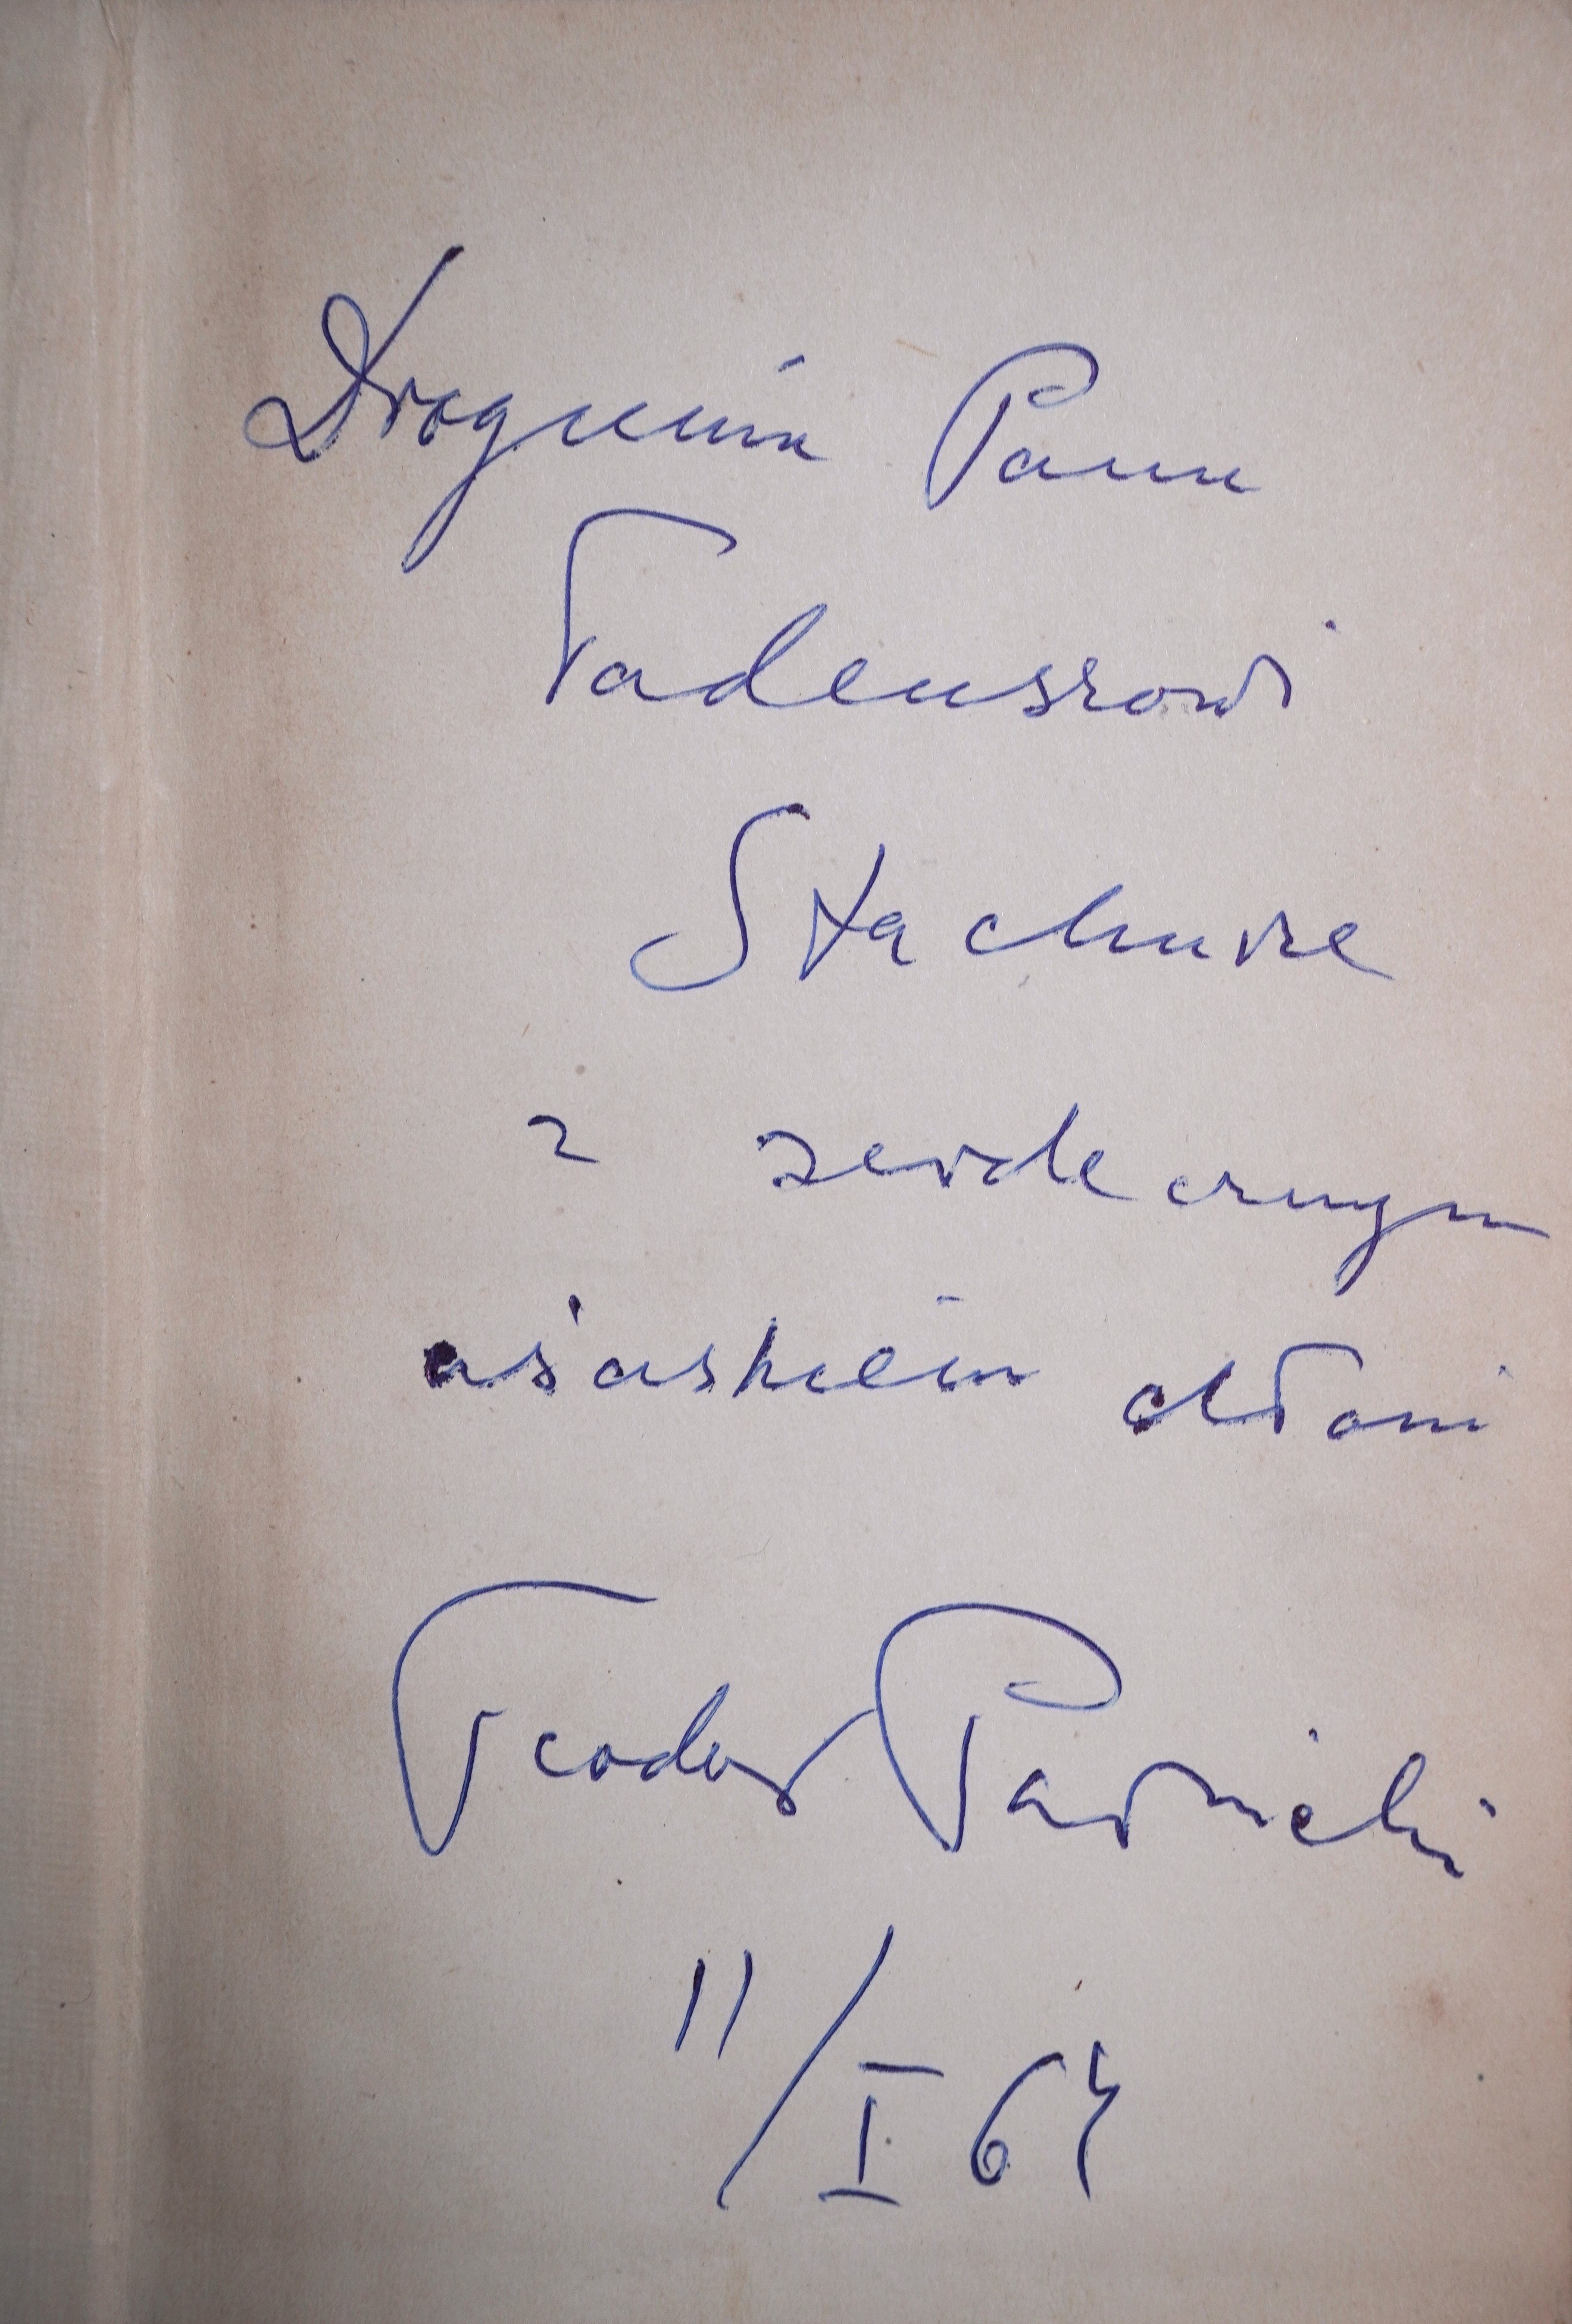 Drogiemu Panu
Tadeuszowi
Stachurze
z serdecznym
uściskiem dłoni
Teodor Parnicki
11/I 64